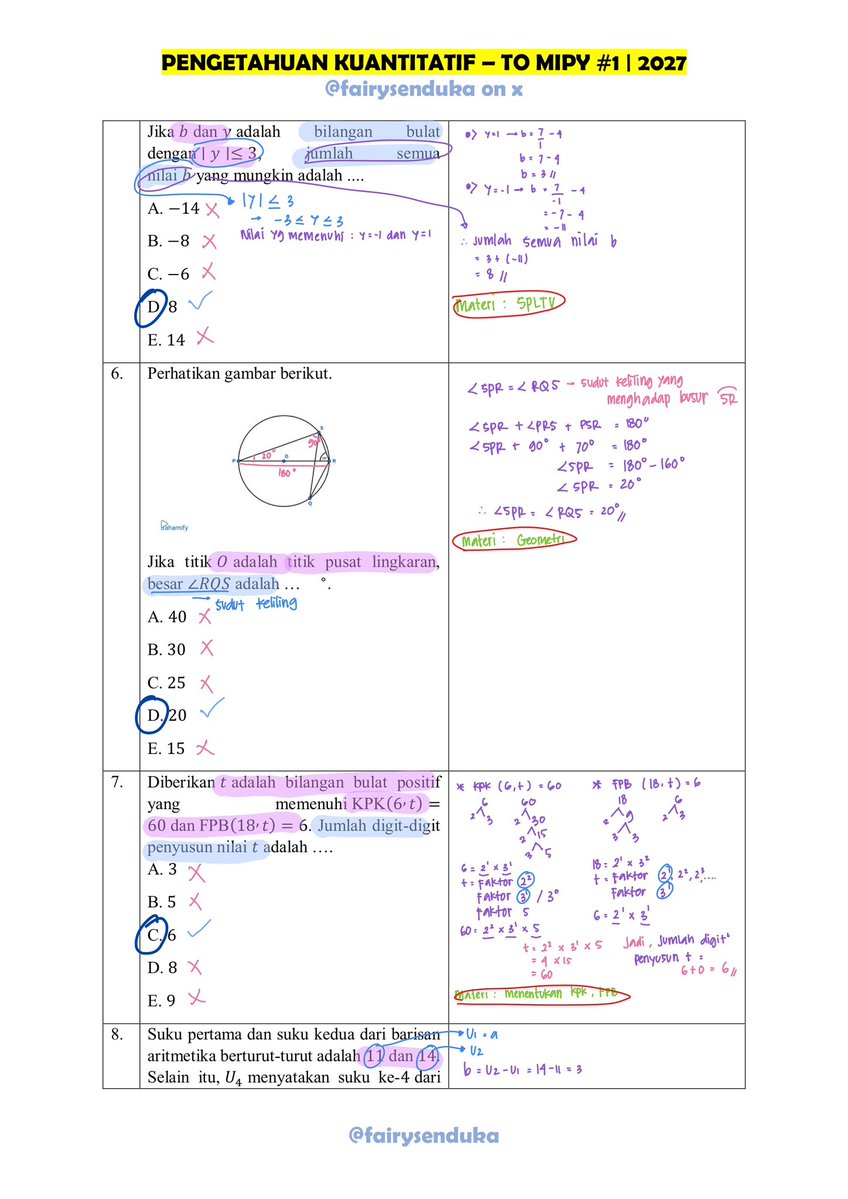 PENGETAHUAN KUANTITATIF – TO MIPY #1 | 2027
@fairysenduka on x
Jika b dan y adalah bilangan bulat
dengan | y |≤ 3, jumlah semua
nilai b yang mungkin adalah ....
A. −14
B. −8
C. −6
D. 8
E. 14
|Y| ≤ 3
→ -3 ≤ Y ≤ 3
Nilai yg memenuhi : Y=-1 dan Y=1
•> Y=1 → b = 7/1 - 4
b = 7 - 4
b = 3 //
•> Y=-1 → b = 7/-1 - 4
= -7 - 4
= -11
∴ Jumlah semua nilai b
= 3 + (-11)
= 8 //
Materi : SPLTV
6.
Perhatikan gambar berikut.
S
90°
P
20°
O
R
180°
Q
Pahamify
Jika titik O adalah titik pusat lingkaran,
besar ∠RQS adalah … °.
→ sudut keliling
A. 40
B. 30
C. 25
D. 20
E. 15
∠SPR = ∠RQS → sudut keliling yang
menghadap busur SR
∠SPR + ∠PRS + PSR = 180°
∠SPR + 90° + 70° = 180°
∠SPR = 180° - 160°
∠SPR = 20°
∴ ∠SPR = ∠RQS = 20° //
Materi : Geometri
7.
Diberikan t adalah bilangan bulat positif
yang memenuhi KPK(6, t) =
60 dan FPB(18, t) = 6. Jumlah digit-digit
penyusun nilai t adalah ….
A. 3
B. 5
C. 6
D. 8
E. 9
* KPK (6,t) = 60
6
2 3
60
2 30
2 15
3 5
6 = 2¹ × 3¹
t = Faktor 2²
Faktor 3¹ / 3⁰
Faktor 5
60 = 2² × 3¹ × 5
* FPB (18,t) = 6
18
2 9
3 3
6
2 3
18 = 2¹ × 3²
t = Faktor 2¹, 2², 2³,...
Faktor 3¹
6 = 2¹ × 3¹
t = 2² × 3¹ × 5
= 4 × 15
= 60
Jadi, jumlah digit²
penyusun t =
6+0 = 6 //
Materi : Menentukan KPK, FPB
8.
Suku pertama dan suku kedua dari barisan
aritmetika berturut-turut adalah 11 dan 14.
Selain itu, U₄ menyatakan suku ke-4 dari
U1 = a
U2
b = U2 - U1 = 14 - 11 = 3
@fairysenduka